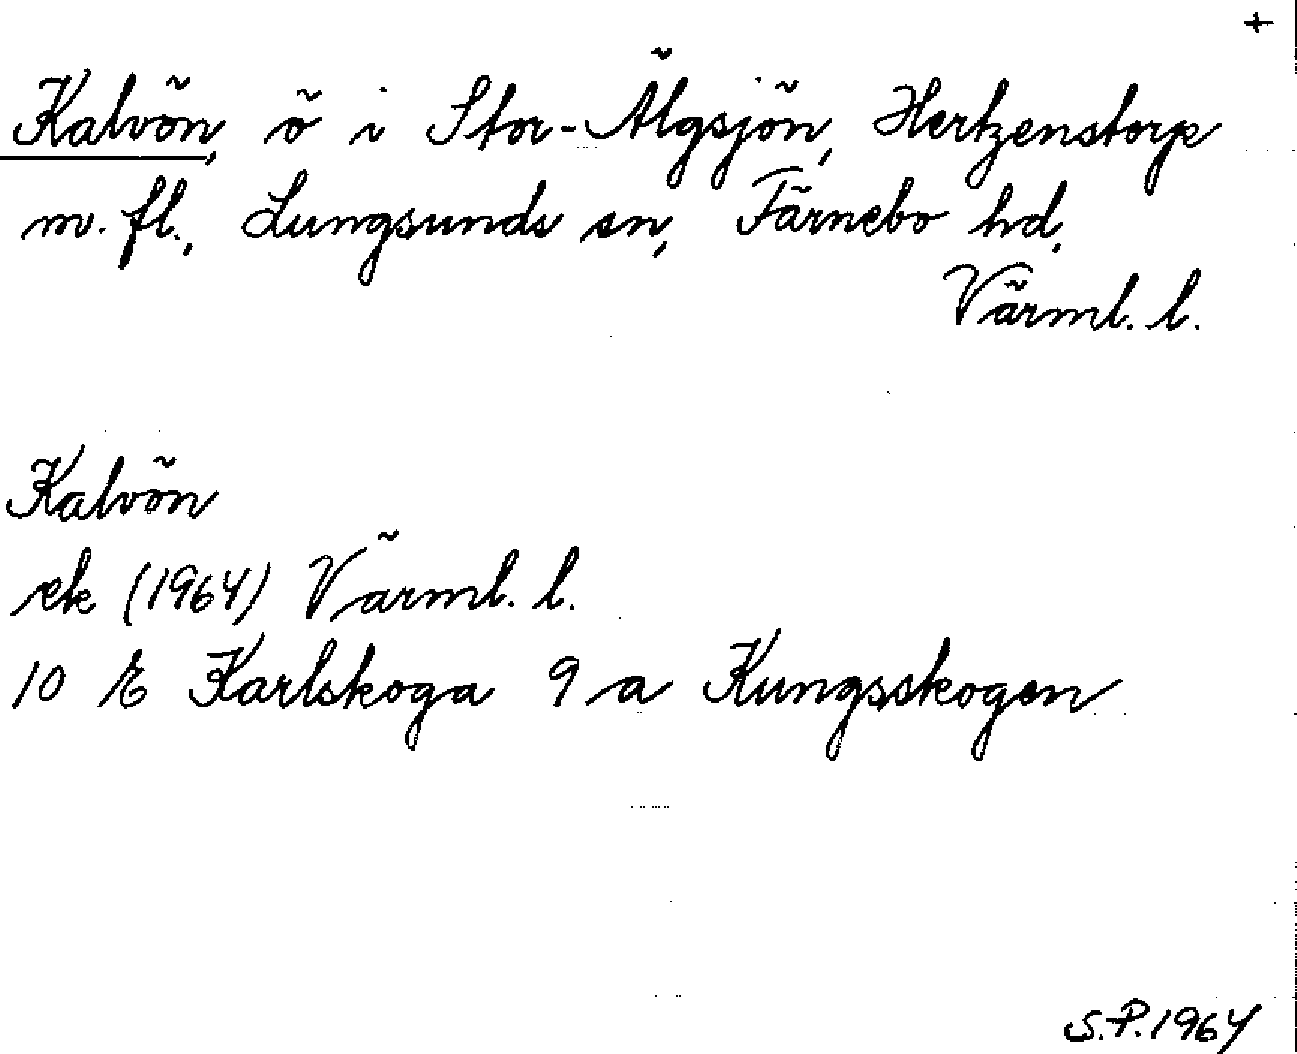 +
Kalvön, ö i Stor-Älgsjön, Hertzenstorp
m. fl., Lungsunds sn, Färnebo hd,
Värml. l.
Kalvön
ek (1964) Värml. l.
10 E Karlskoga 9 a Kungsskogen
S.P. 1964